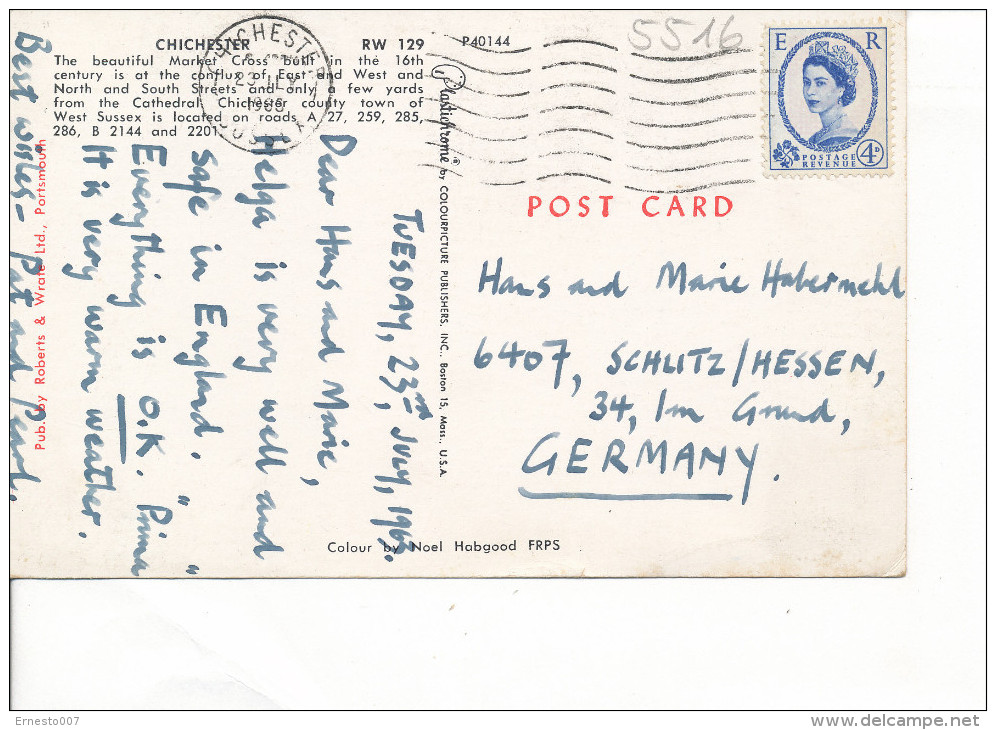 CHICHESTER RW 129 P40144
The beautiful Market Cross built in the 16th
century is at the conflux of East and West and
North and South Streets and only a few yards
from the Cathedral. Chichester county town of
West Sussex is located on roads A 27, 259, 285,
286, B 2144 and 2201.
CHICHESTER
SUSSEX
5516
E R
POSTAGE
REVENUE
4D
Plastichrome ® by COLOURPICTURE PUBLISHERS, INC., Boston 15, Mass., U.S.A.
POST CARD
TUESDAY, 23rd JULY, 1963.
Dear Hans and Marie,
Helga is very well and
safe in England.
Everything is O.K. "Prima"
It is very warm weather.
Best wishes - Pat and Pearl.
Pub. by Roberts & Wrate Ltd., Portsmouth
Hans and Marie Habermehl
6407, SCHLITZ/HESSEN,
34, Im Grund,
GERMANY.
Colour by Noel Habgood FRPS
Ernesto007
delcampe.net